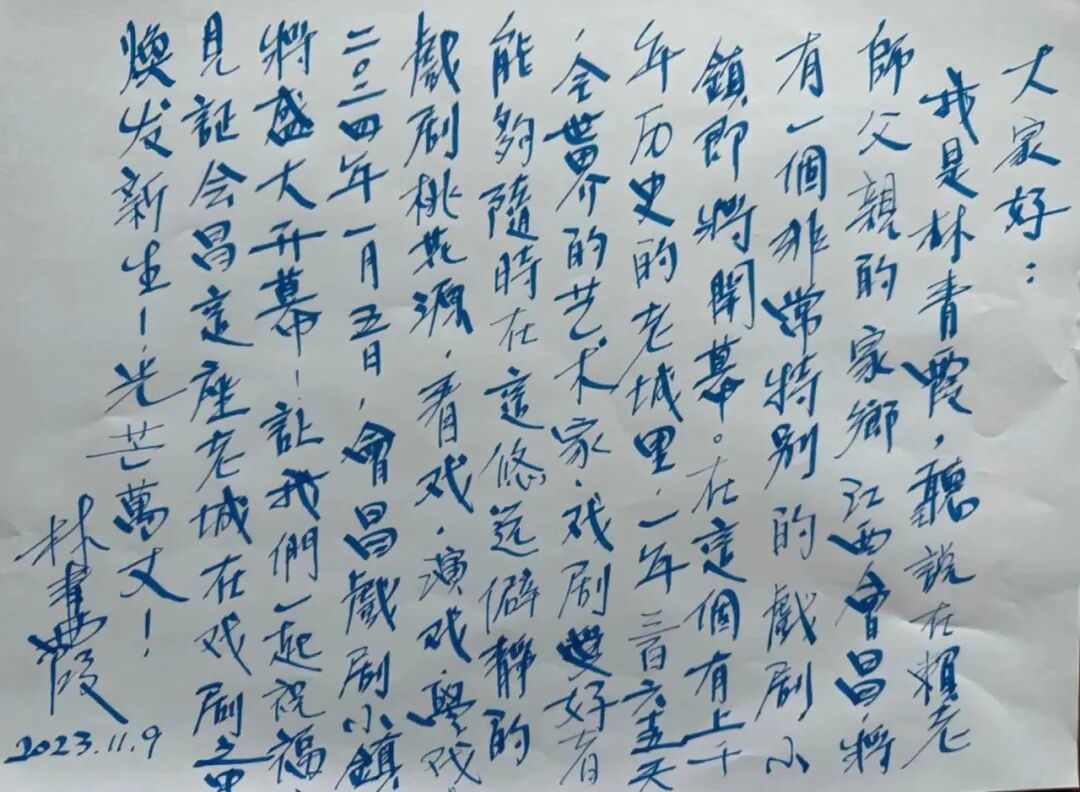 大家好：
我是林青霞，聽說在賴老
師父親的家鄉江西會昌，將
有一個非常特别的戲剧小
鎮即将開幕。在這個有上千
年历史的老城里，一年三百六五天
，全世界的艺术家、戏剧爱好者
能夠隨時在這悠远僻静的
戲剧桃花源，看戏，演戏，學戏。
二〇二四年一月五日，會昌戲剧小鎮
將盛大开幕！让我們一起祝福，
見証会昌這座老城在戏剧之中
煥发新生！光芒萬丈！
林青霞
2023.11.9